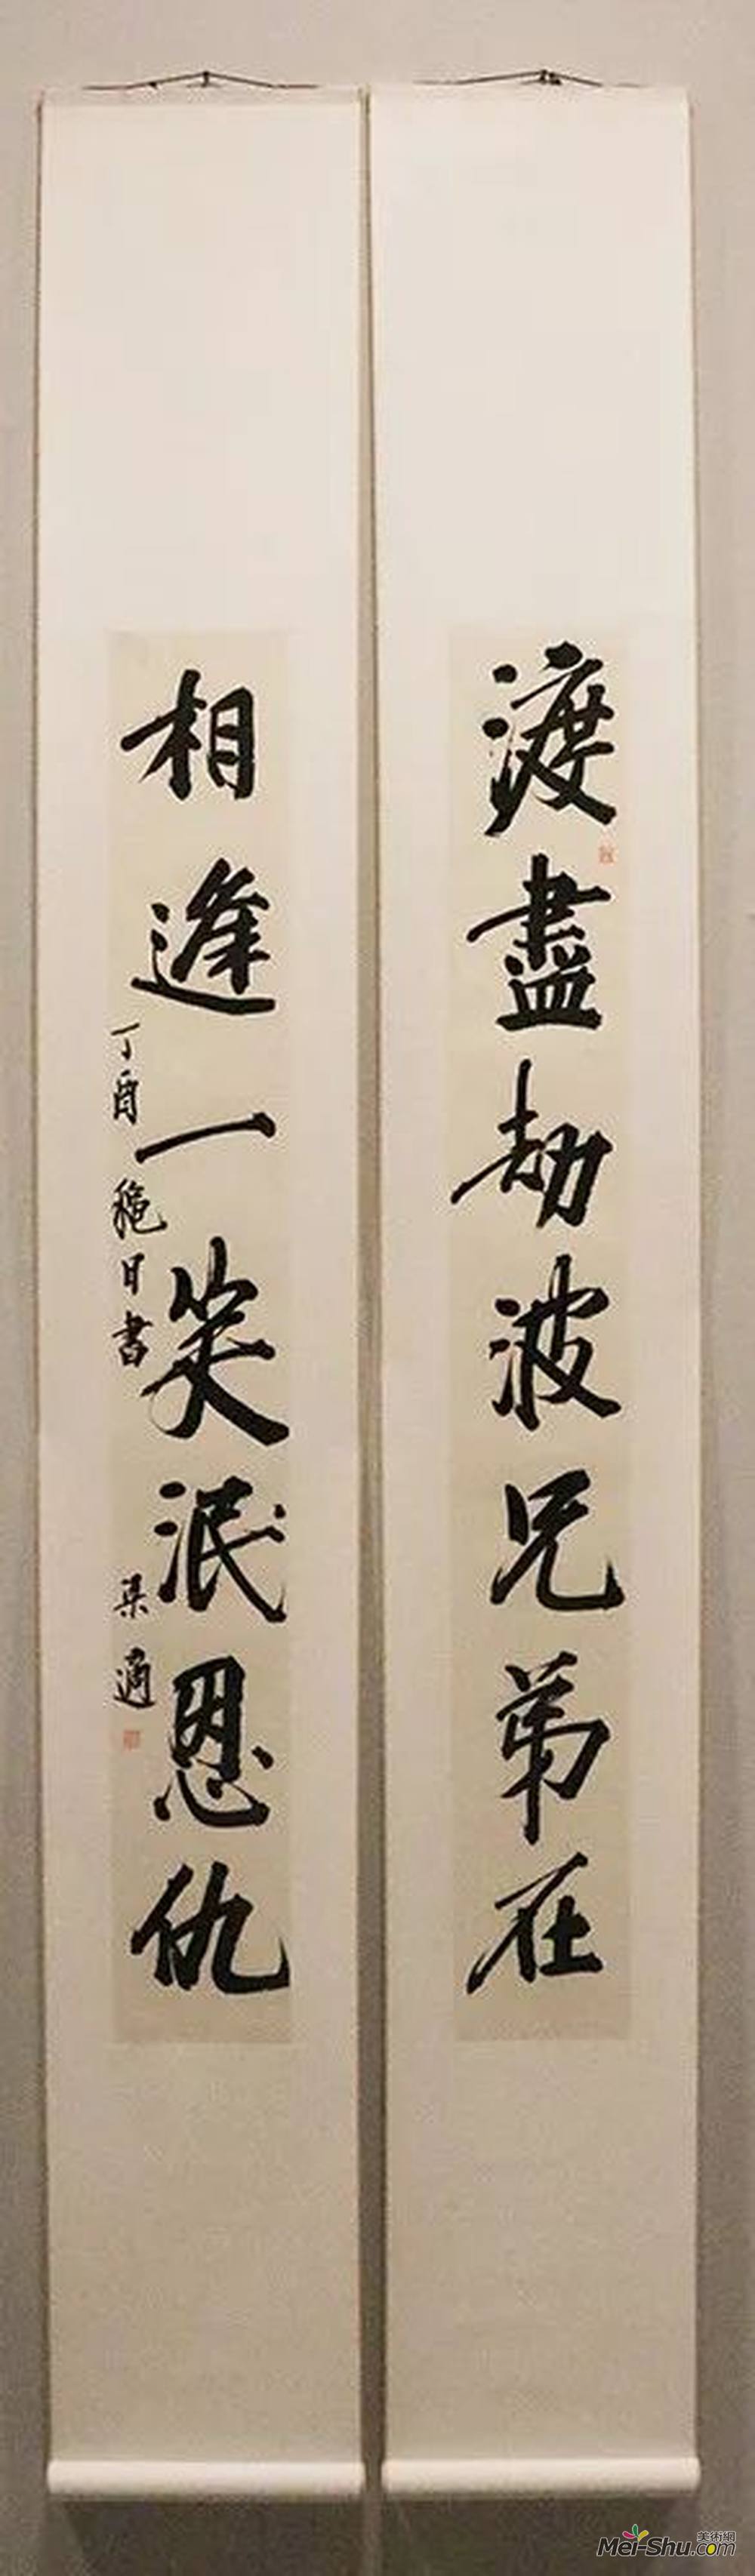 渡盡劫波兄弟在
相逢一笑泯恩仇
丁酉龝日書
梁適
美術網
Mei-Shu.com